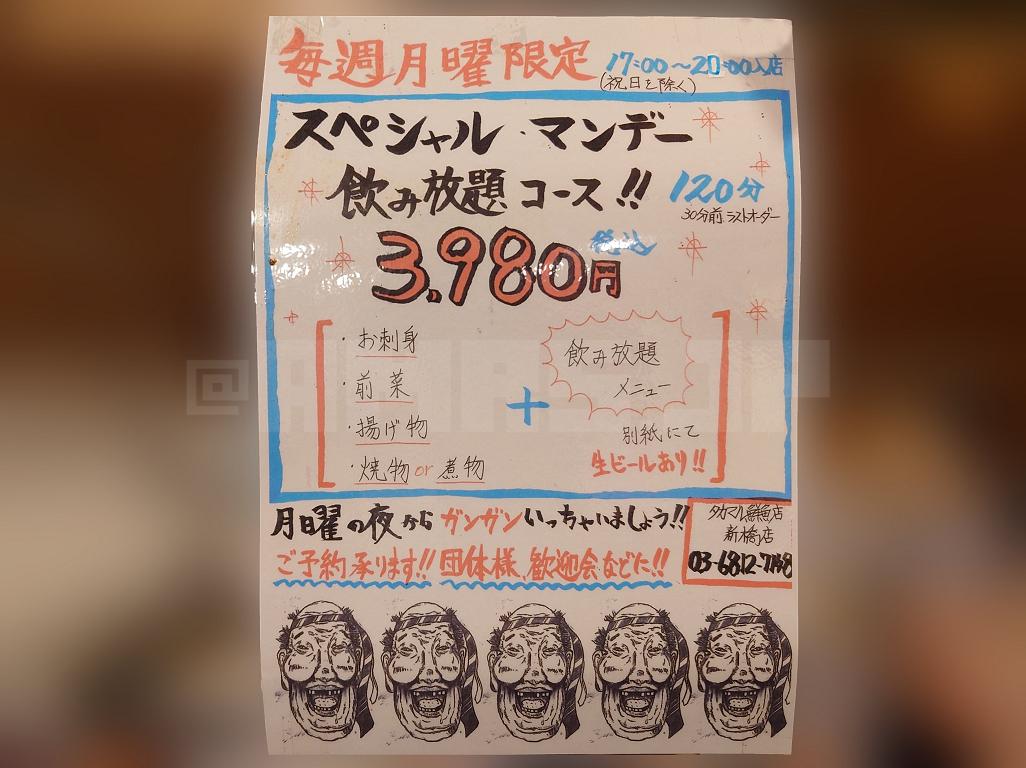 毎週月曜限定 17:00〜20:00入店
(祝日を除く)
スペシャル・マンデー
飲み放題コース!! 120分
30分前ラストオーダー
3,980円 税込
・お刺身
・前菜
・揚げ物
・焼物or煮物
+
飲み放題
メニュー
別紙にて
生ビールあり!!
月曜の夜からガンガンいっちゃいましょう!!
ご予約承ります!! 団体様、歓迎会などに!!
タカマル鮮魚店
新橋店